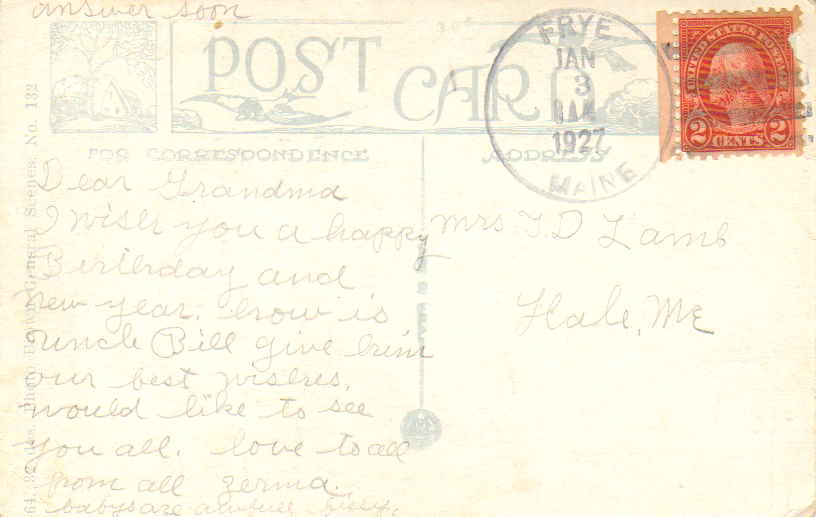 answer soon
POST CARD
FOR CORRESPONDENCE
ADDRESS
FRYE
JAN
3
1927
MAINE
UNITED STATES POSTAGE
2 CENTS 2
Dear Grandma
I wish you a happy
Birthday and
New year. how is
uncle Bill give him
our best wishes.
would like to see
you all. love to all
from all zerma.
babys are awfull
Mrs T. D Lamb
Hale, Me
General Scenes. No. 132